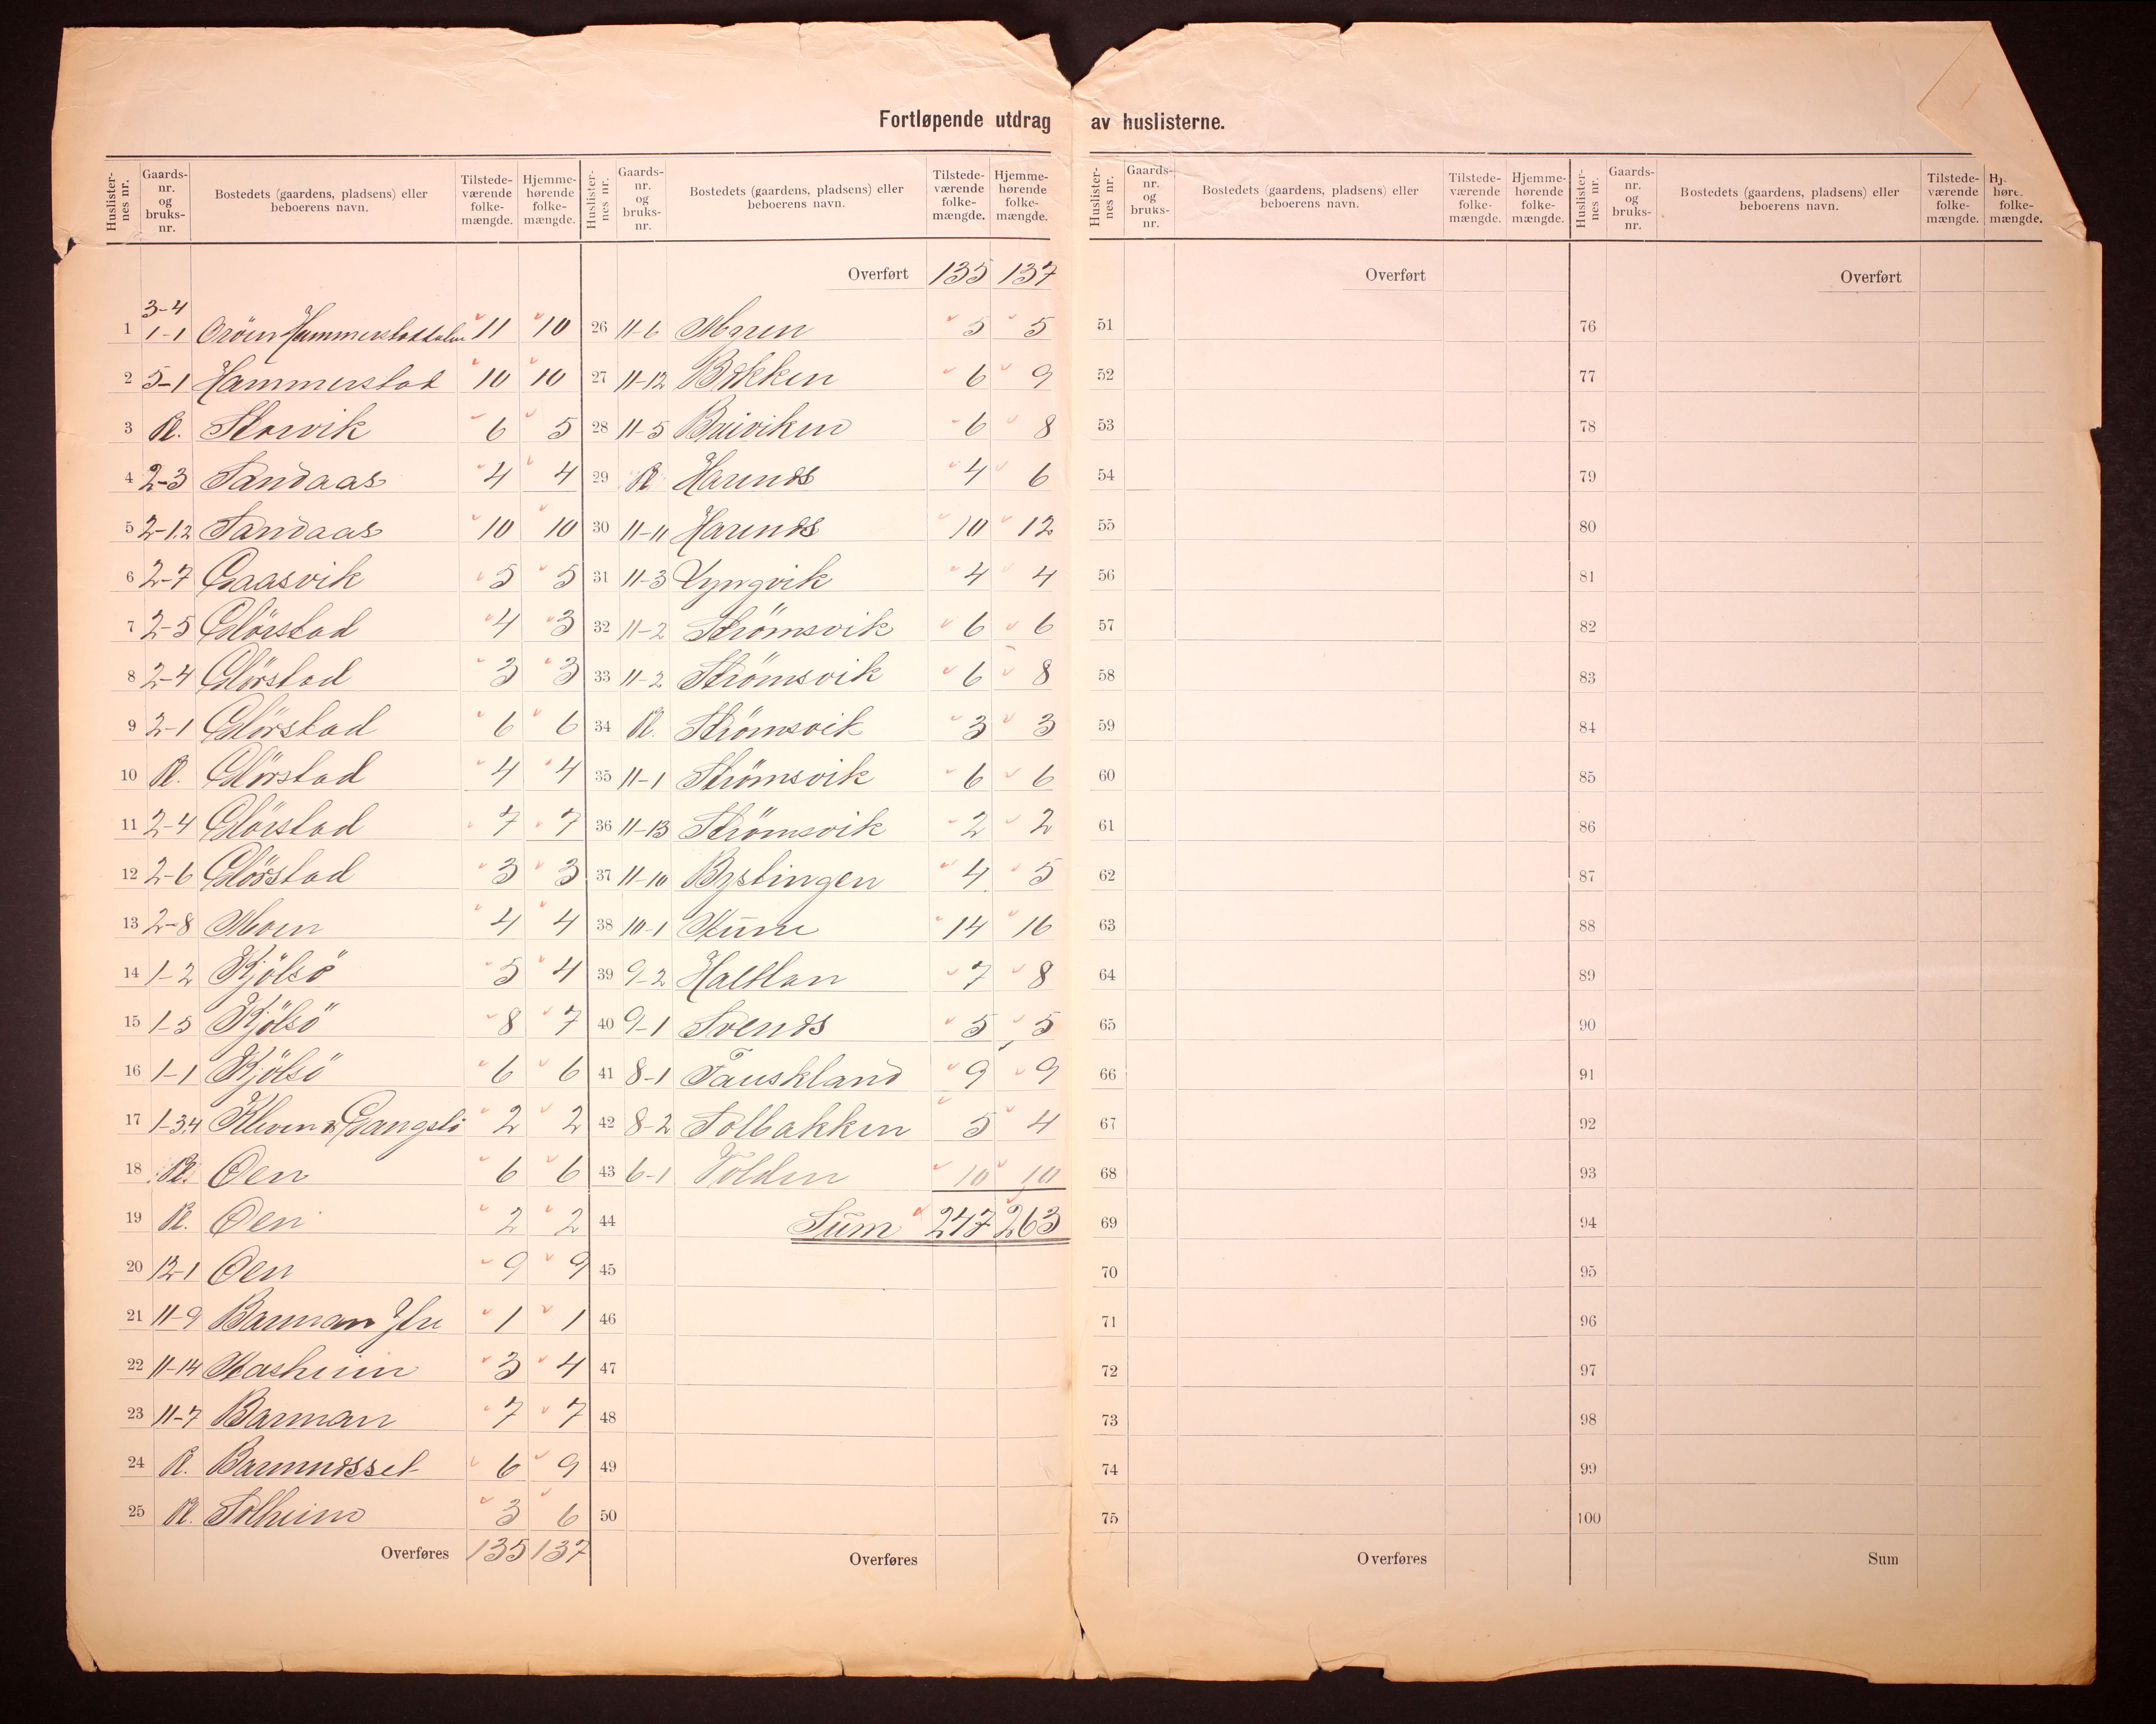 Fortløpende utdrag av huslisterne.
Huslisternes nr. Gaardsnr. og bruksnr. Bostedets (gaardens, pladsens) eller beboerens navn. Tilstedeværende folkemængde. Hjemmehørende folkemængde.
3-4
1 1-1 Hammerstaddalen 11 10
2 5-1 Hammerstad 10 10
3 Pl. Storvik 6 5
4 2-3 Sandaas 4 4
5 2-1.2 Sandaas 10 10
6 2-7 Gaasvik 5 5
7 2-5 Glörstad 4 3
8 2-4 Glörstad 3 3
9 2-1 Glörstad 6 6
10 Pl. Glörstad 4 4
11 2-4 Glörstad 7 7
12 2-6 Glörstad 3 3
13 2-8 Moen 4 4
14 1-2 Kjölsö 5 4
15 1-5 Kjölsö 8 7
16 1-1 Kjölsö 6 6
17 1-3.4 Kleven & Gangslö 2 2
18 Pl. Öen 6 6
19 Pl. Öen 2 2
20 12-1 Öen 9 9
21 11-9 Barman Ytre 1 1
22 11-14 Skasheim 3 4
23 11-7 Barman 7 7
24 Pl. Barmndsset 6 9
25 Pl. Solheim 3 6
Overføres 135 137
Huslisternes nr. Gaardsnr. og bruksnr. Bostedets (gaardens, pladsens) eller beboerens navn. Tilstedeværende folkemængde. Hjemmehørende folkemængde.
Overført 135 137
26 11-6 Moen 5 5
27 11-12 Bakken 6 9
28 11-5 Breiviken 6 8
29 Pl. Harends 4 6
30 11-11 Harends 10 12
31 11-3 Lyngvik 4 4
32 11-2 Strömsvik 6 6
33 11-2 Strömsvik 6 8
34 Pl. Strömsvik 3 3
35 11-1 Strömsvik 6 6
36 11-13 Strömsvik 2 2
37 11-10 Bystingen 4 5
38 10-1 Stene 14 16
39 9-2 Haltlan 7 8
40 9-1 Svends 5 5
41 8-1 Tauskland 9 9
42 8-2 Solbakken 5 4
43 6-1 Volden 10 10
44 Sum 247 263
45
46
47
48
49
50
Overføres
Huslisternes nr. Gaardsnr. og bruksnr. Bostedets (gaardens, pladsens) eller beboerens navn. Tilstedeværende folkemængde. Hjemmehørende folkemængde.
Overført
51
52
53
54
55
56
57
58
59
60
61
62
63
64
65
66
67
68
69
70
71
72
73
74
75
Overføres
Huslisternes nr. Gaardsnr. og bruksnr. Bostedets (gaardens, pladsens) eller beboerens navn. Tilstedeværende folkemængde. Hj. høre. folkemængde.
Overført
76
77
78
79
80
81
82
83
84
85
86
87
88
89
90
91
92
93
94
95
96
97
98
99
100
Sum